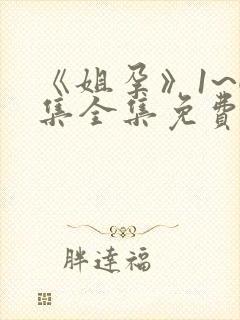 《姐孕》1~
集全集免費
胖達福